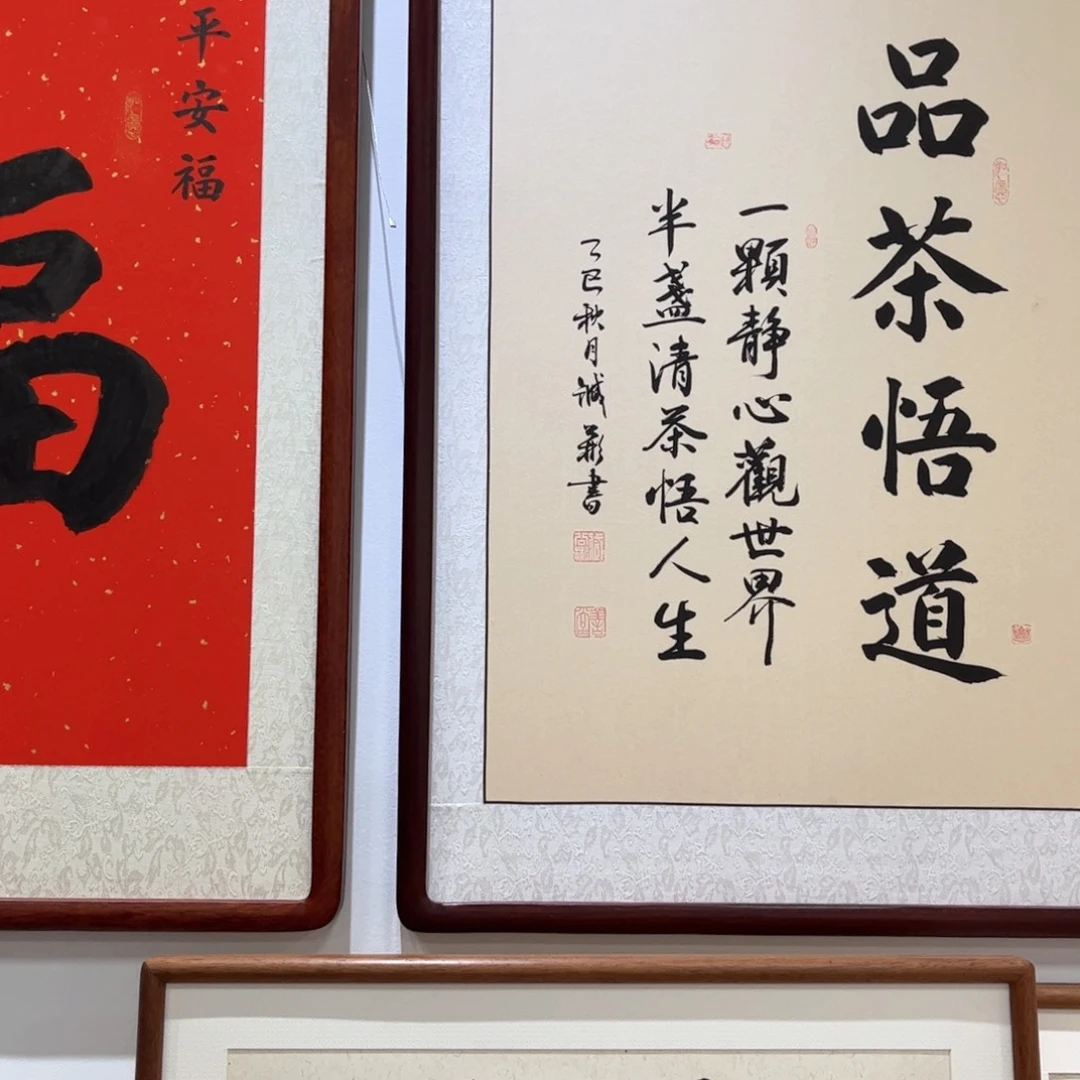 品茶悟道
一顆静心觀世界
半盞清茶悟人生
乙巳秋月誠彰書
平安福
福